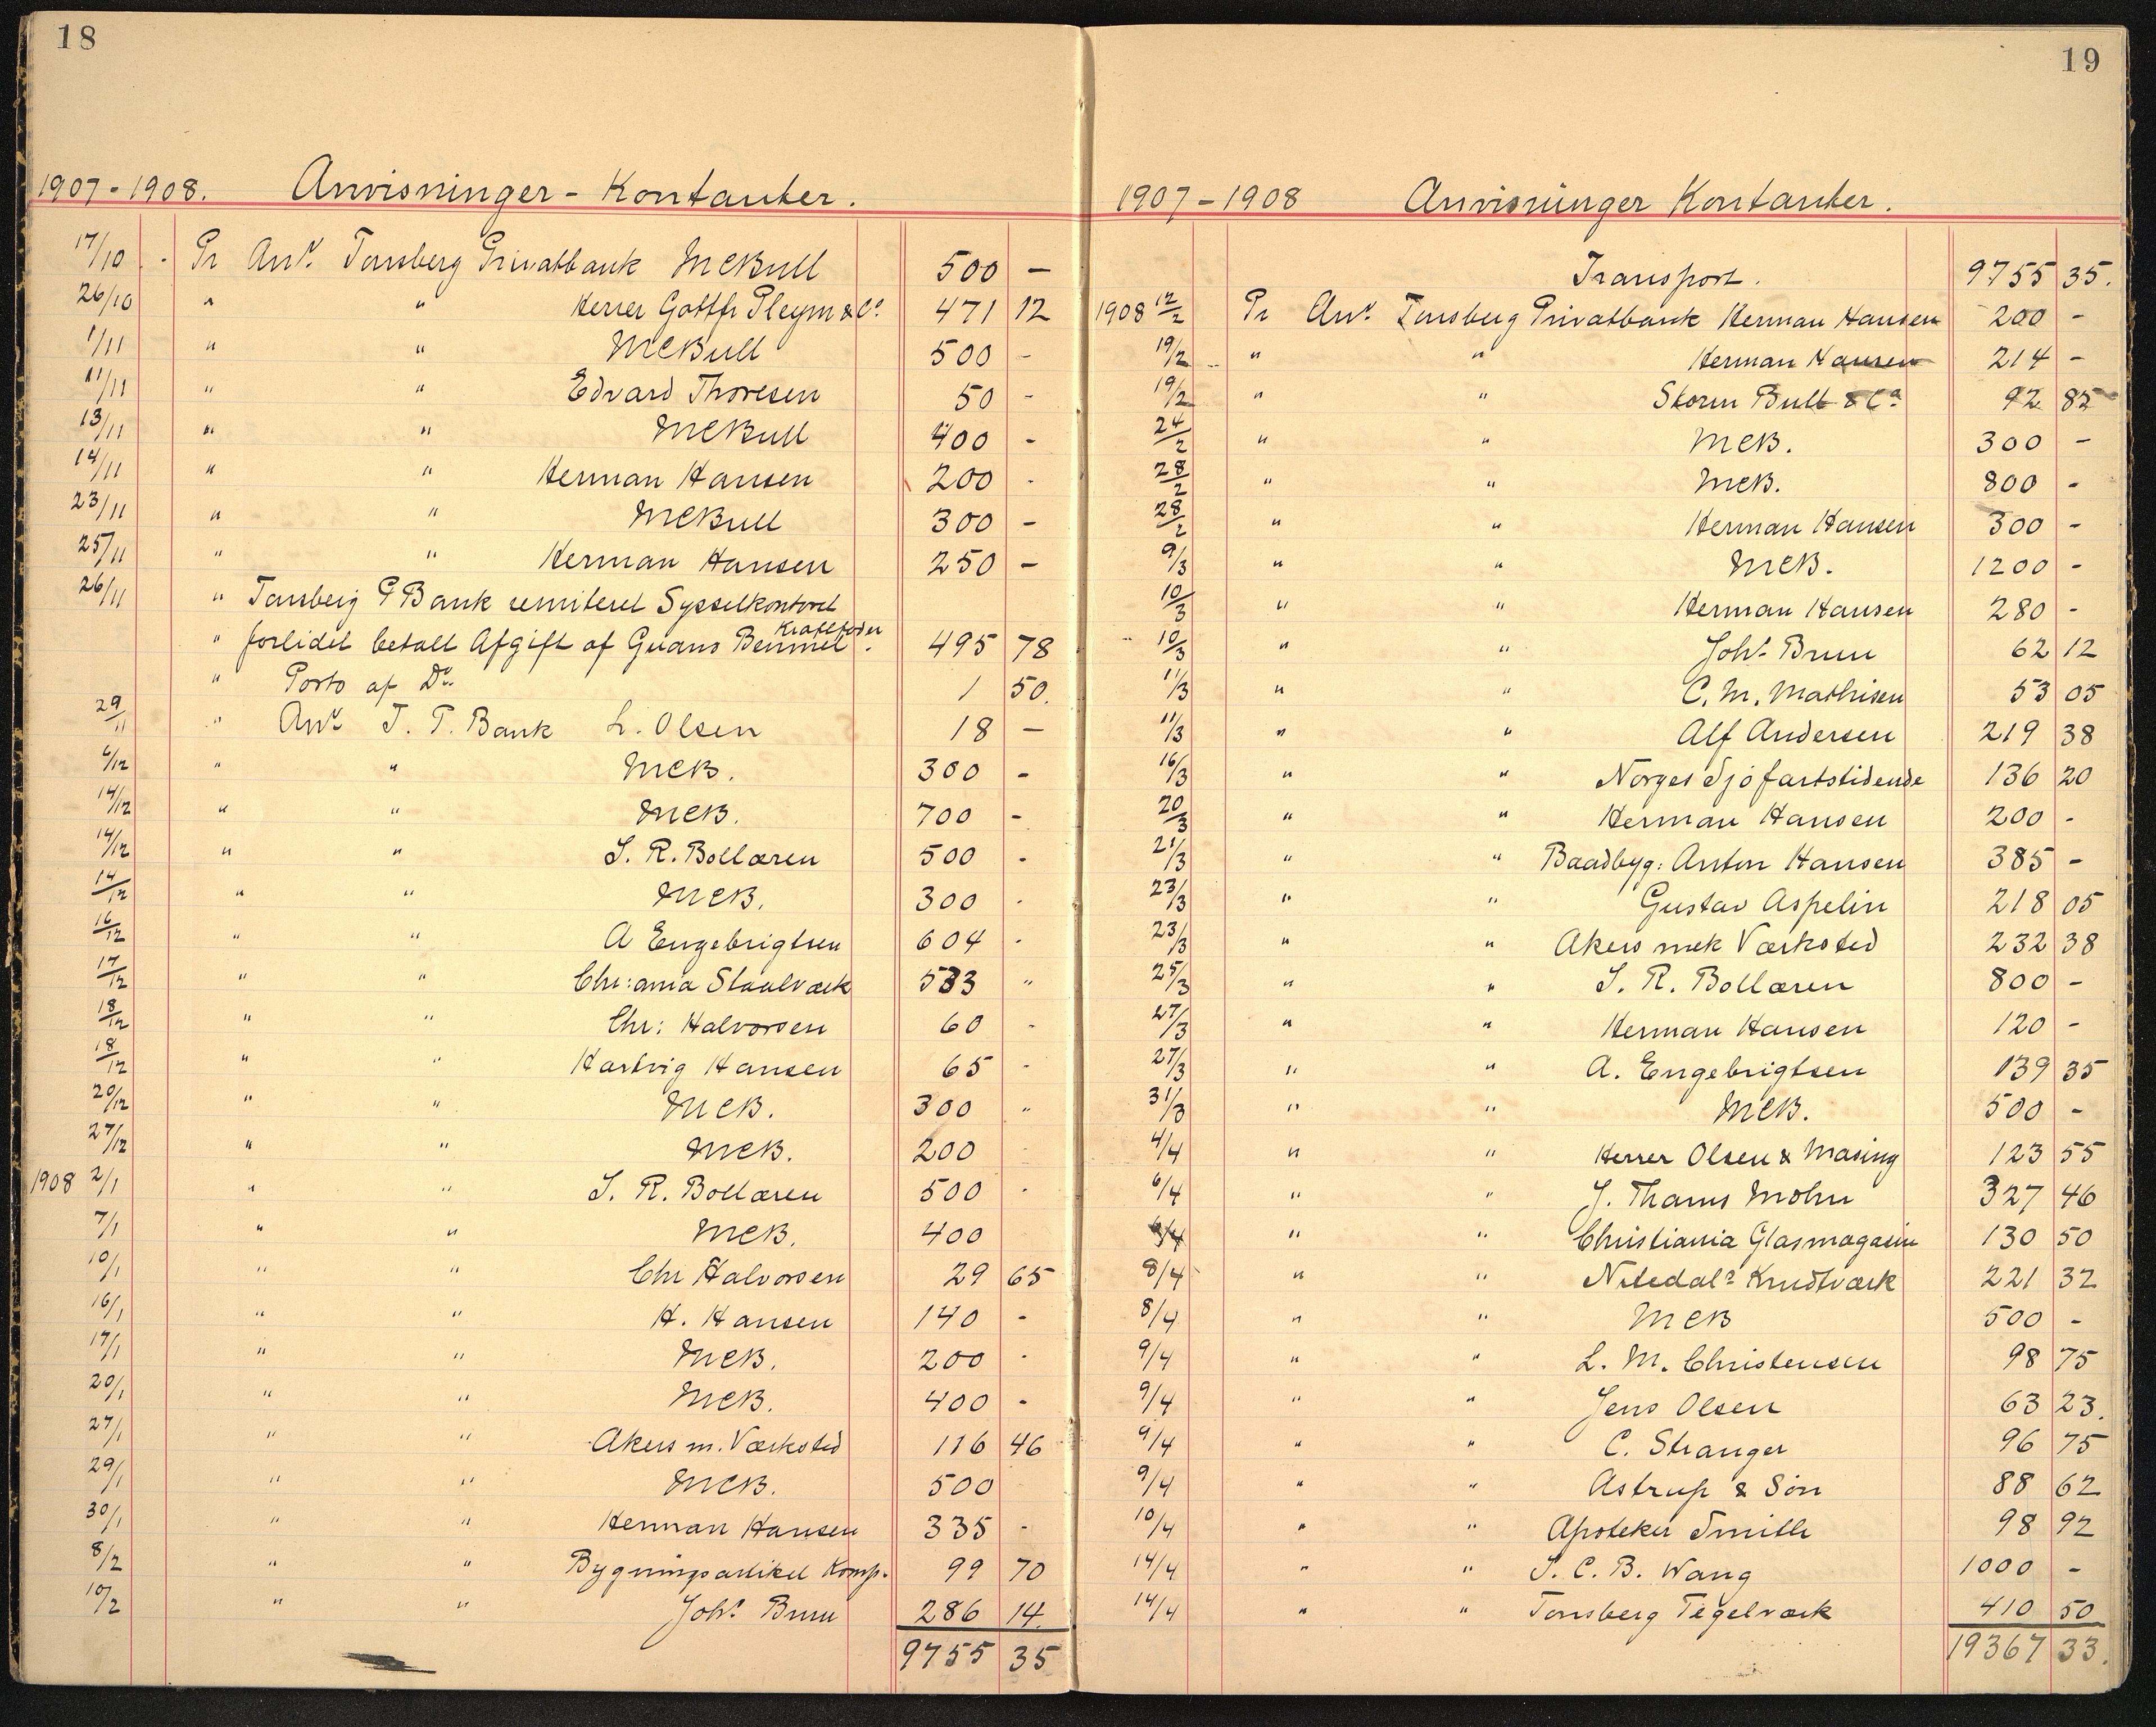 18
1907-1908. Anvisninger - Kontanter.
17/10 Pr Anv. Tønsberg Privatbank MCBull 500 —
26/10 " " Herrer Gottfr Pleym & Co. 471 12
1/11 " " MCBull 500 -
11/11 " " Edvard Thoresen 50 -
13/11 " " MCBull 400 -
14/11 " " Herman Hansen 200 -
23/11 " " MCBull 300 -
25/11 " " Herman Hansen 250 -
26/11 " Tønsberg P Bank remiteret Sysselkontoret
Kraftfoder
" forlidet betalt Afgift af Guano Benmel. 495 78
" Porto af Do. 1 50.
29/11 " Anv. T. P. Bank L. Olsen 18 —
6/12 " " MCB. 300 -
14/12 " " MCB. 700 -
14/12 " " S. R. Bollæren 500 -
14/12 " " MCB. 300 -
16/12 " " A Engebrigtsen 604 -
17/12 " " Chr:ania Staalværk 533 "
18/12 " " Chr: Halvorsen 60 -
18/12 " " Hartvig Hansen 65 -
20/12 " " MCB. 300 "
27/12 " " MCB. 200 -
1908 2/1 " " S. R. Bollæren 500 -
7/1 " " MCB. 400
10/1 " " Chr Halvorsen 29 65
16/1 " " H. Hansen 140 -
17/1 " " MCB. 200 -
20/1 " " MCB. 400 -
27/1 " " Akers m. Værksted 116 46
29/1 " " MCB. 500 -
30/1 " " Herman Hansen 335 -
8/2 " " Bygningsartikel Komp. 99 70
10/2 " " Johs. Bruu 286 14.
9755 35
19
1907-1908 Anvisninger Kontanter.
Transport. 9755 35.
1908 12/2 Pr Anv. Tønsberg Privatbank Herman Hansen 200 -
19/2 " " Herman Hansen 214 -
19/2 " " Storm Bull & Co 92 85
24/2 " " MCB. 300 -
28/2 " " MCB. 800 -
28/2 " " Herman Hansen 300 -
9/3 " " MCB. 1200 -
10/3 " " Herman Hansen 280 -
10/3 " " Johs. Bruu 62 12
11/3 " " C. M. Mathisen 53 05
11/3 " " Alf Andersen 219 38
16/3 " " Norges Sjøfartstidende 136 20
20/3 " " Herman Hansen 200 -
21/3 " " Baadbyg: Anton Hansen 385 -
23/3 " " Gustav Aspelin 218 05
23/3 " " Akers mek Værksted 232 38
25/3 " " S. R. Bollæren 800 -
27/3 " " Herman Hansen 120 -
27/3 " " A. Engebrigtsen 139 35
31/3 " " MCB. 500 -
4/4 " " Herrer Olsen & Masing 123 55
6/4 " " J. Thams Mohn 327 46
" " Christiania Glasmagasin 130 50
8/4 " " Nitedals Krudtværk 221 32
8/4 " " MCB 500 -
9/4 " " L. M. Christensen 98 75
9/4 " " Jens Olsen 63 23.
9/4 " " C. Stranger 96 75
9/4 " " Astrup & Søn 88 62
10/4 " " Apoteker Smith 98 92
14/4 " " S. C. B. Wang 1000 -
14/4 " " Tønsberg Tegelværk 410 50
19367 33.